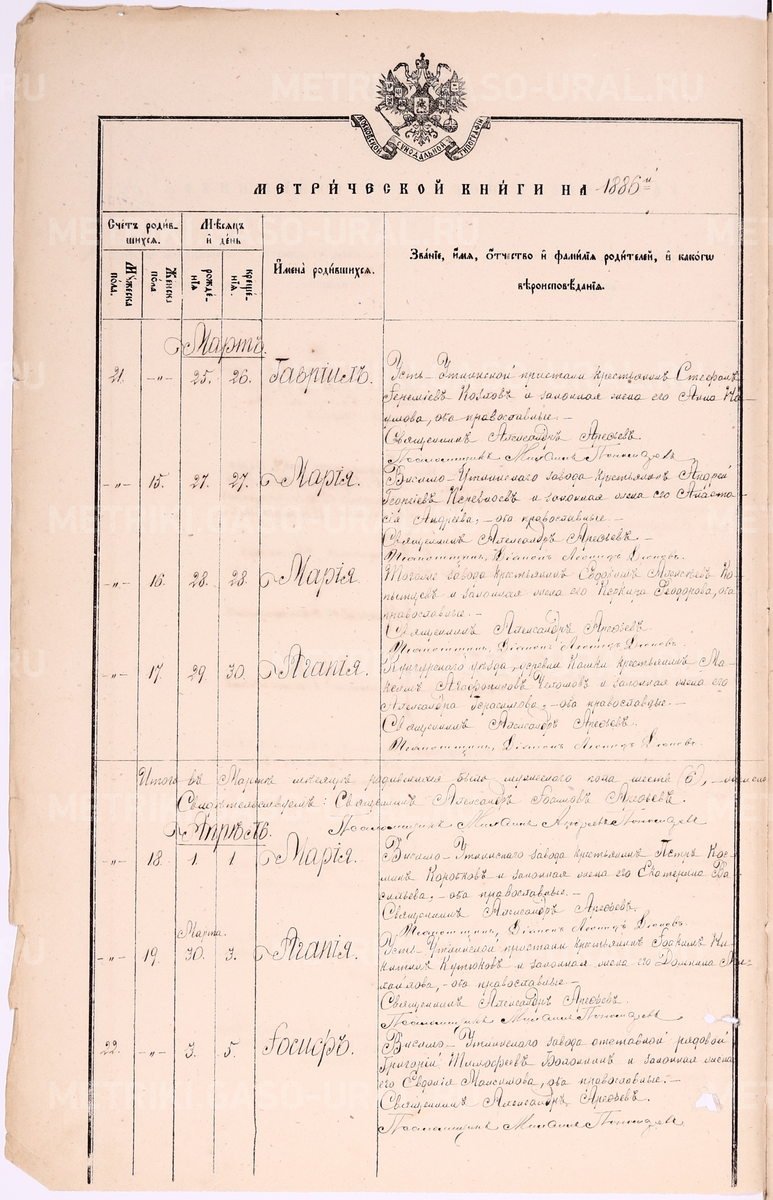 МОСКОВСКОЙ СѴНОДАЛЬНОЙ ТИПОГРАФІИ
МЕТРИ́ЧЕСКОЙ КНИ́ГИ НА 1886й
Сче́тъ роди́вшихся.
Мѣ́сяцъ и҆ де́нь
Му́жеска по́ла.
Же́нска по́ла
рожде́нїѧ
креще́нїѧ.
И҆мена̀ роди́вшихсѧ.
Зва́нїе, и҆́мѧ, ѻ҆́тчество и҆ фами́лїѧ роди́телей, и҆ како́гѡ
вѣроисповѣ́данїѧ.
Мартъ.
21. -„- 25. 26. Гавріилъ.
Усть-Уткинской пристани крестьянинъ Стефанъ
Іеремѣевъ Козловъ и законная жена его Анна
обо православные.-
Священникъ Александръ Арефьевъ.
Псаломщикъ Михаилъ Пономаревъ
-„- 15. 27. 27. Марія.
Висимо-Уткинскаго завода крестьянинъ Андрей
Георгіевъ и законная жена его Анаста-
сія Андреева, обо православные.-
Священникъ Александръ Арефьевъ.
Псаломщикъ, Діаконъ Леонидъ
-„- 16. 28. 28. Марія.
Тогоже завода крестьянинъ Алексѣевъ
и законная жена его Ѳеодорова, оба
православные.-
Священникъ Александръ Арефьевъ.
Псаломщикъ, Діаконъ Леонидъ
-„- 17. 29. 30. Агапія.
Кунгурскаго уѣзда, деревни крестьянинъ Ма-
и законная жена его
Александра Герасимова, обо православные.-
Священникъ Александръ Арефьевъ.
Псаломщикъ, Діаконъ Леонидъ
Итого въ Мартѣ мѣсяцѣ родившихся было мужескаго пола шесть (6),
Свидѣтельствуемъ: Священникъ Александръ Арефьевъ.
Псаломщикъ Михаилъ Андреевъ Пономаревъ
Апрѣль.
-„- 18. 1. 1. Марія.
Висимо-Уткинскаго завода крестьянинъ Петръ Кос-
минъ Коробковъ и законная жена его Екатерина Ва-
сильева, обо православные.-
Священникъ Александръ Арефьевъ.
Псаломщикъ, Діаконъ Леонидъ
Марта.
-„- 19. 30. 3. Агапія.
Усть-Уткинской пристани крестьянинъ Іоакимъ Ни-
китинъ Кутюковъ и законная жена его Домника Ми-
хаилова, обо православные.-
Священникъ Александръ Арефьевъ.
Псаломщикъ Михаилъ Пономаревъ
22. -„- 3. 5. Іосифъ.
Висимо-Уткинскаго завода отставной рядовой
Григорій Тимофеевъ и законная жена
его Евдокія Максимова, оба православные.-
Священникъ Александръ Арефьевъ.
Псаломщикъ Михаилъ Пономаревъ